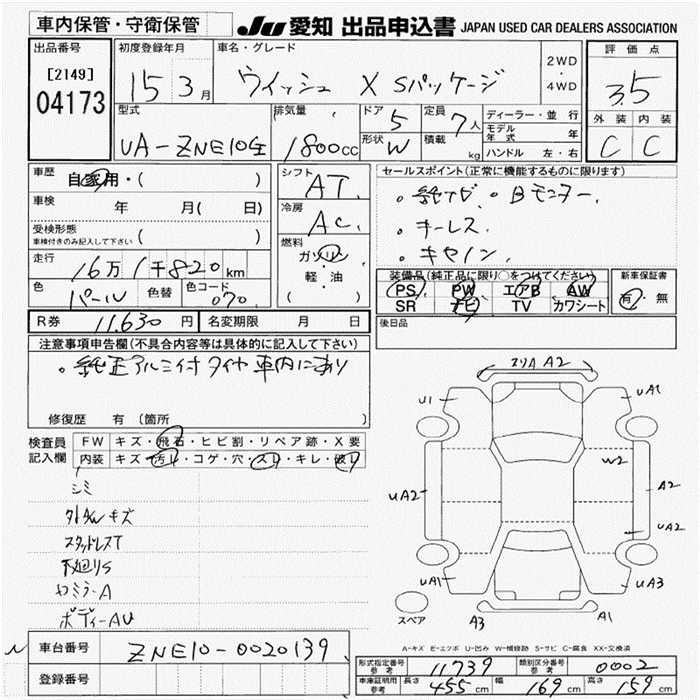 車内保管・守衛保管
JU 愛知 出品申込書 JAPAN USED CAR DEALERS ASSOCIATION
出品番号 初度登録年月 車名・グレード 2WD・4WD 評価点
[2149]
04173 15 3月 ウィッシュ X Sパッケージ 3.5
型式 排気量 ドア 5 定員 7人 ディーラー・並行 外装 内装
UA-ZNE10G 1800cc 形状 W 積載 kg モデル年式 年 C C
ハンドル 左・右
車歴 自家用・( ) シフト AT セールスポイント(正常に機能するものに限ります)
車検 年 月( 日) 冷房 AC ・純ナビ・Bモニター
受検形態 ・キーレス
車検付きのみ記入して下さい 燃料 ガソリン ・キャノン
走行 16万1千820km 軽・油 ( )
装備品(純正品に限り○をつけてください) 新車保証書
PS PW エアB AW 有・無
SR ナビ TV カワシート
色 パール 色替 色コード 070
R券 11.630円 名変期限 月 日 後日品
注意事項申告欄(不具合内容等は具体的に記入して下さい)
・純正アルミ付タイヤ車内にあり
修復歴 有(箇所 )
検査員 FW キズ・飛石・ヒビ割・リペア跡・X要
記入欄 内装 キズ・汚レ・コゲ・穴・スレ・キレ・破レ
シミ
キズ
スタッドレスT
下廻りS
ミラーA
ボディーAU
A2
U1 UA1
W2
UA2 A2
UA2
UA1 UA3
スペア A3 A1
A-キズ E-エクボ U-凹み W-補修跡 S-サビ C-腐食 XX-交換済
車台番号 ZNE10-0020139
登録番号
形式指定番号 参考 11739 類別区分番号 参考 0002
車庫証明用 参考 長さ 455cm 幅 169cm 高さ 159cm